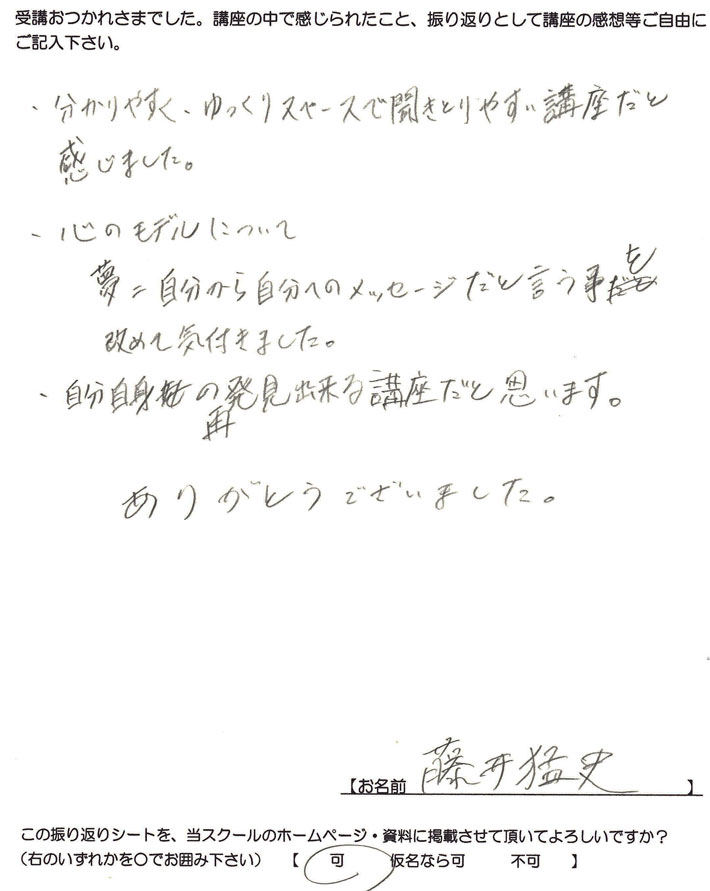 受講おつかれさまでした。講座の中で感じられたこと、振り返りとして講座の感想等ご自由に
ご記入下さい。
・分かりやすく、ゆっくりスペースで聞きとりやすい講座だと
感じました。
・心のモデルについて
夢=自分から自分へのメッセージだと言う事を
改めて気付きました。
・自分自身の再発見出来る講座だと思います。
ありがとうございました。
【お名前 藤井猛史 】
この振り返りシートを、当スクールのホームページ・資料に掲載させて頂いてよろしいですか?
(右のいずれかを〇でお囲み下さい) 【 可 仮名なら可 不可 】